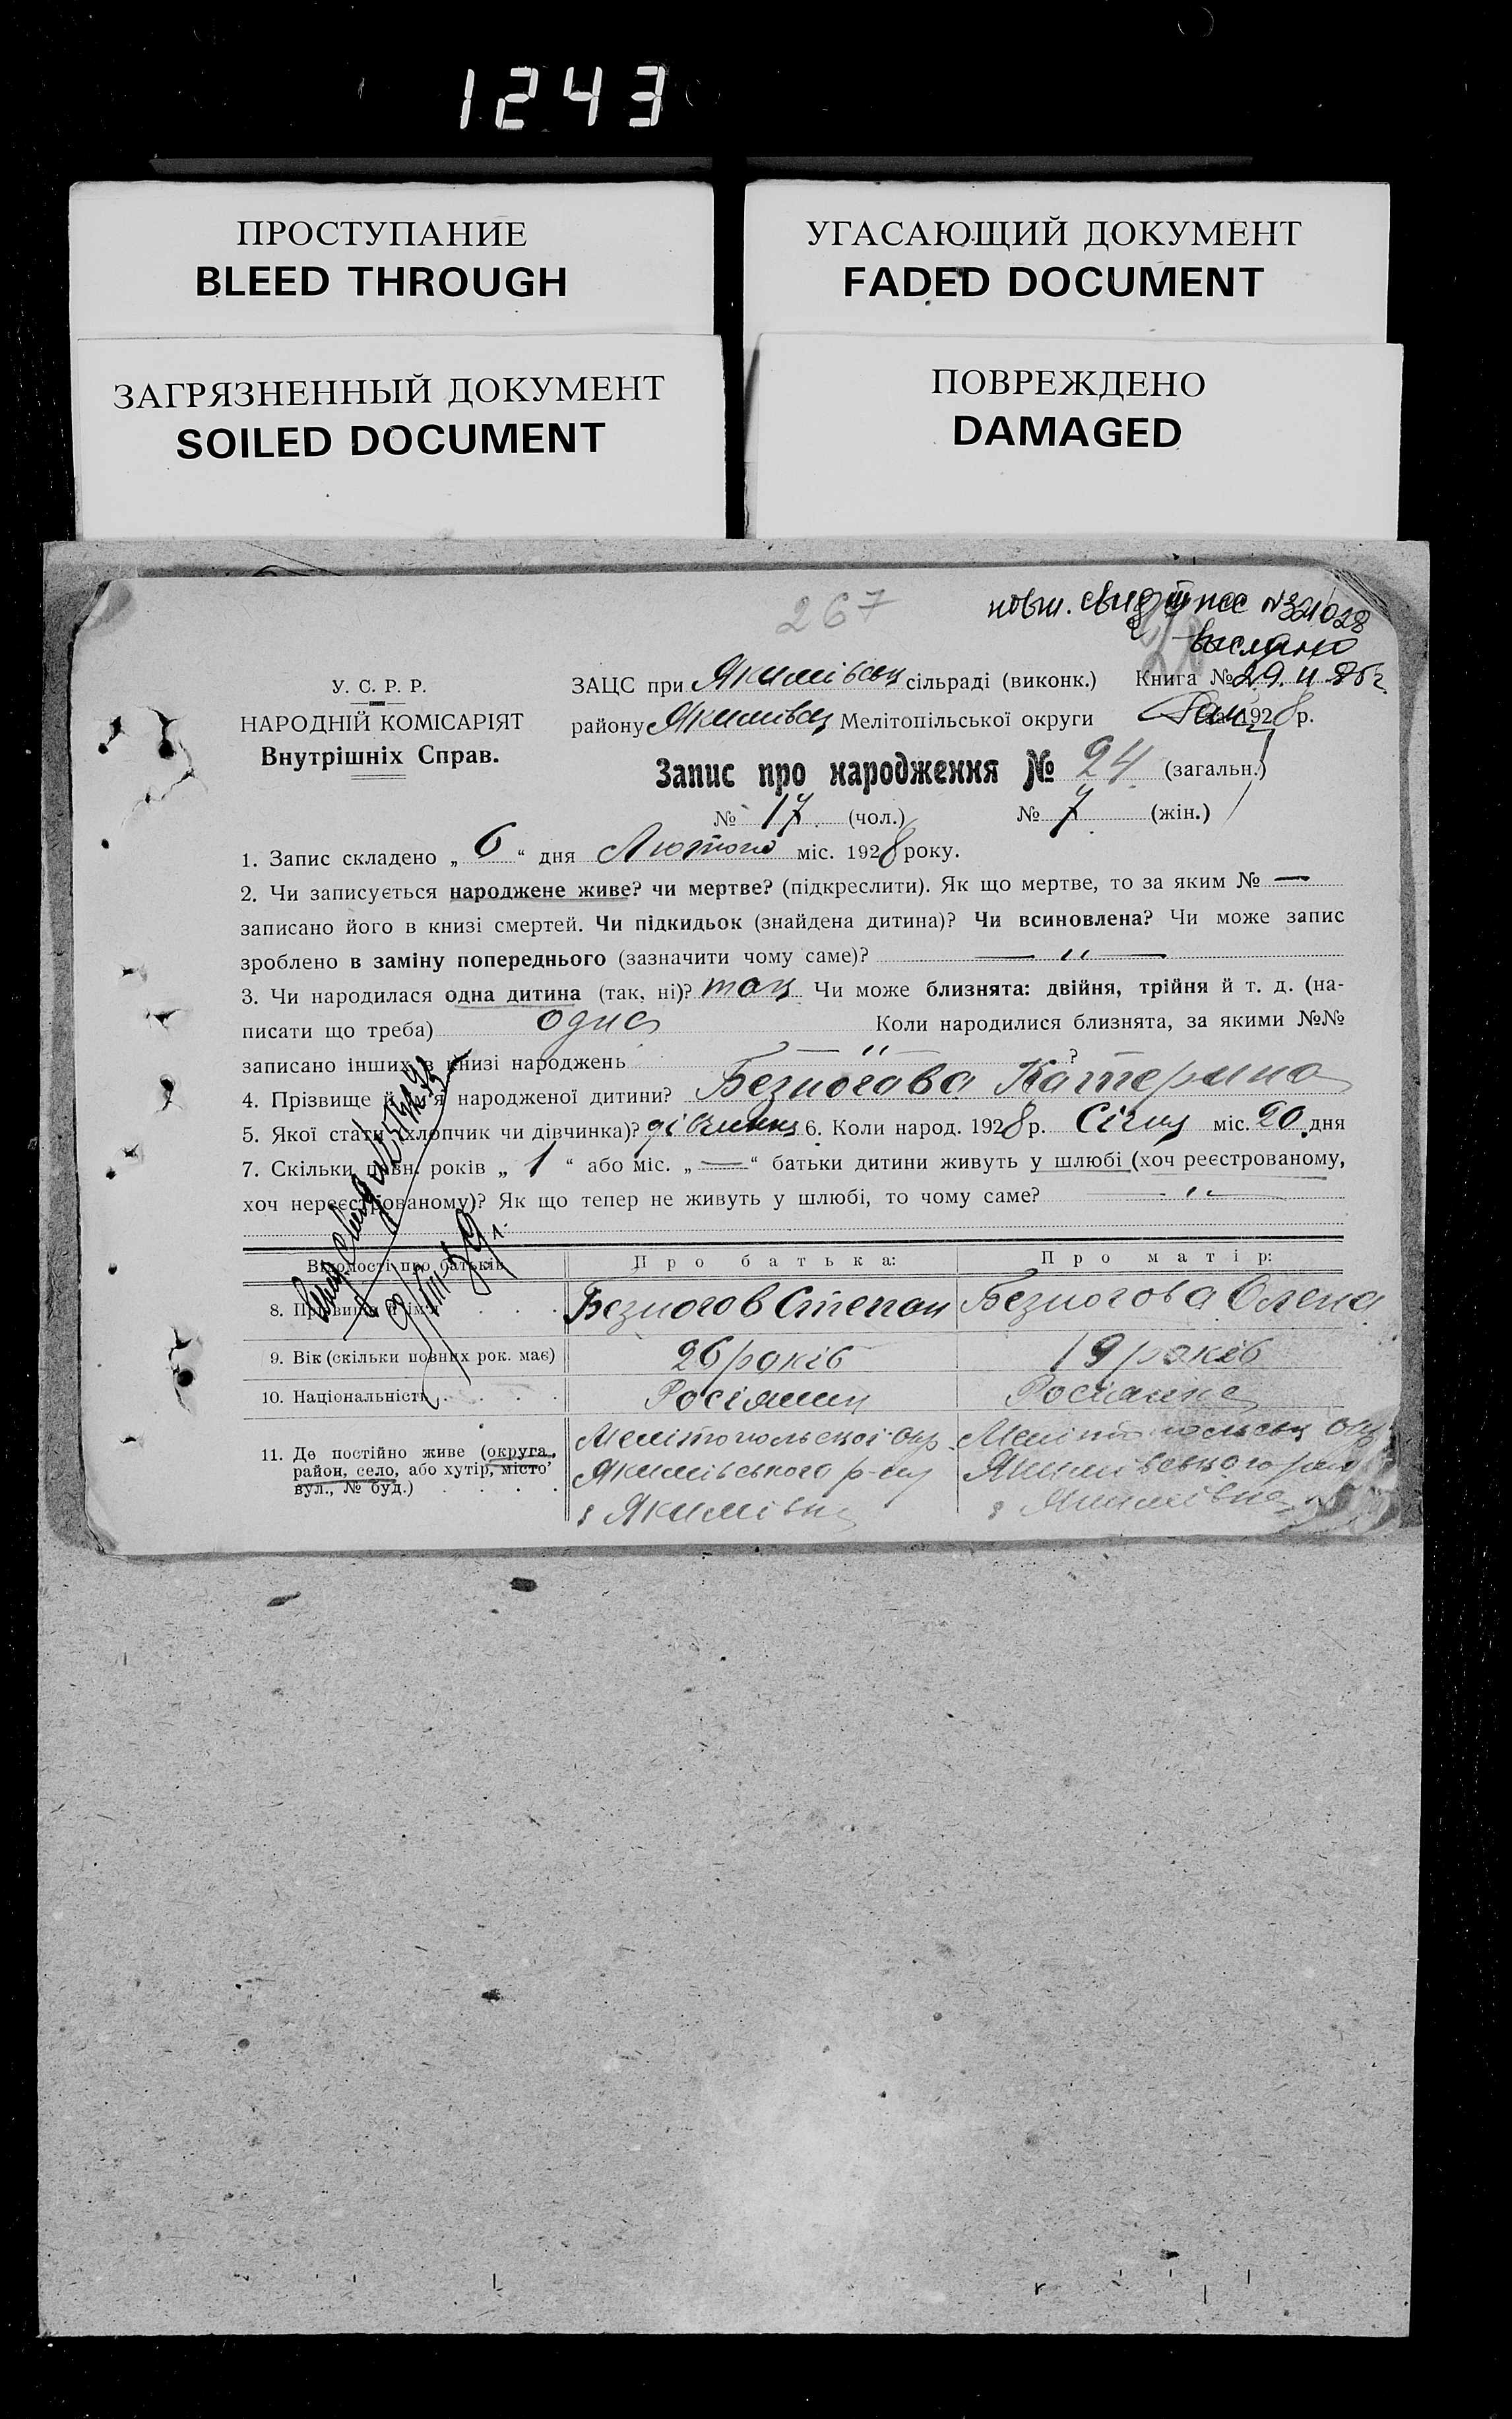 1243
ПРОСТУПАНИЕ
BLEED THROUGH
УГАСАЮЩИЙ ДОКУМЕНТ
FADED DOCUMENT
ЗАГРЯЗНЕННЫЙ ДОКУМЕНТ
SOILED DOCUMENT
ПОВРЕЖДЕНО
DAMAGED
267
повт. свид
выслано
У. С. Р. Р.
НАРОДНІЙ КОМІСАРІЯТ
Внутрішніх Справ.
ЗАЦС при Якимівськ сільраді (виконк.) Книга № 29.
району Якимівськ Мелітопільської округи за 1928 р.
Запис про народження № 24 (загальн.)
№ 17 (чол.) № 7 (жін.)
1. Запис складено „ 6 “ дня Лютого міс. 1928 року.
2. Чи записується народжене живе? чи мертве? (підкреслити). Як що мертве, то за яким № —
записано його в книзі смертей. Чи підкидьок (знайдена дитина)? Чи всиновлена? Чи може запис
зроблено в заміну попереднього (зазначити чому саме)? — „ —
3. Чи народилася одна дитина (так, ні)? так Чи може близнята: двійня, трійня й т. д. (на-
писати що треба) одна Коли народилися близнята, за якими №№
записано інших в книзі народжень — „ — ?
4. Прізвище й ім'я народженої дитини? Безногова Катерина
5. Якої статі (хлопчик чи дівчинка)? дівчинка 6. Коли народ. 1928 р. Січня міс. 20 дня
7. Скільки повн. років „ 1 “ або міс. „ — “ батьки дитини живуть у шлюбі (хоч реєстрованому,
хоч нереєстрованому)? Як що тепер не живуть у шлюбі, то чому саме? — „ —
Відомості про батьків Про батька: Про матір:
8. Прізвище й ім'я . . . Безногов Степан Безногова Олена
9. Вік (скільки повних рок. має) 26 років 19 років
10. Національність . . . Росіянин Росіянка
11. Де постійно живе (округа, район, село, або хутір, місто вул., № буд.) . . . .
Мелітопольської окр
Якимівського р-ну
с Якимівка
Мелітопольськ окр
Якимівського рай
с Якимівка